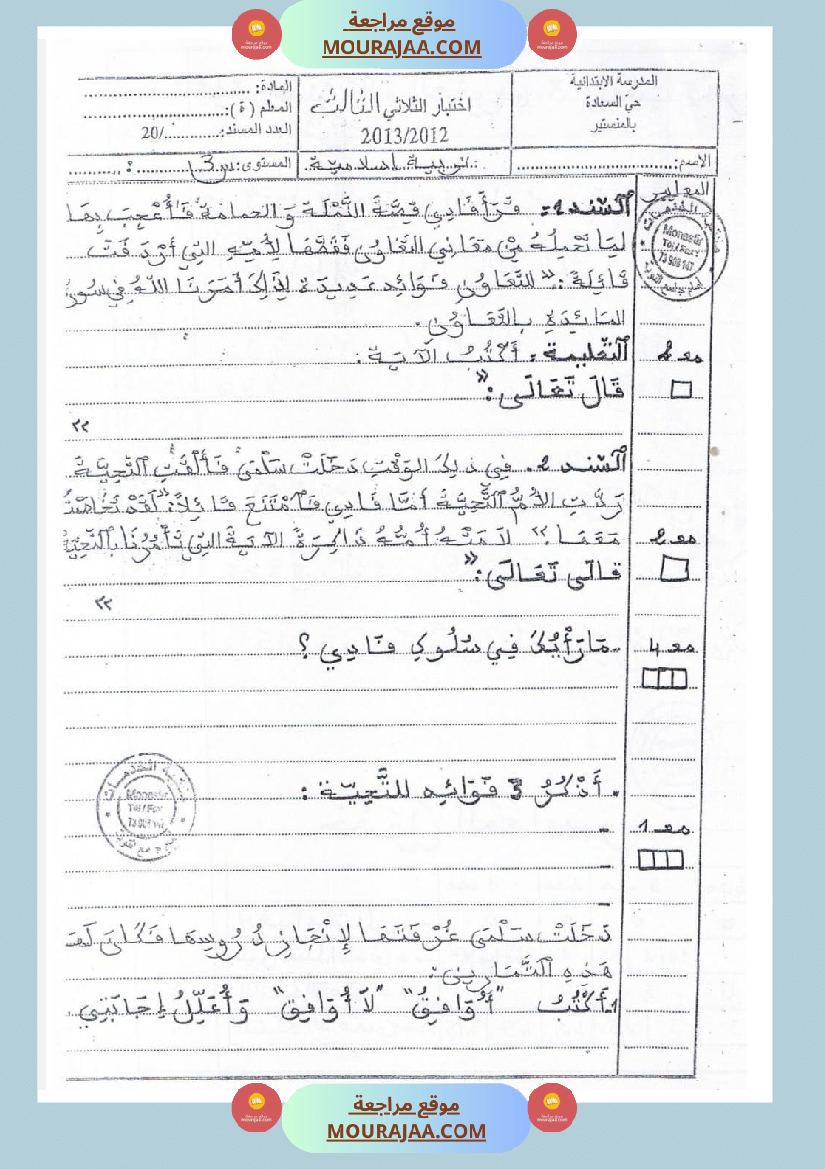 موقع مراجعة
MOURAJAA.COM
المدرسة الابتدائية
حيّ السعادة
بالمنستير
اختبار الثلاثي الثالث
2013/2012
المادة: ..........
المعلم ( ة ): ..........
العدد المسند: ........../20
الاسم: ..........
تربية اسلامية
المستوى: ..........
المعايير
السّند 1: قرأ فادي قصّة النّملة و الحمامة فأُعجب بها
لما تحمله من معاني التعاون فقصّها لأمّه التي أردفت
قائلة: "للتّعاون فوائد عديدة لذلك أمرنا اللّه في سورة
المائدة بالتّعاون.
التّعليمة: أكتب الآية:
مع 2
قَالَ تَعَالَى: "
"
السّند 2: في ذلك الوقت دخلت سلمى فألقت التّحيّة
ردّت الأمّ التّحيّة أمّا فادي فامتنع قائلا: "لقد تخاصمت
معها." لامته أمّه ذاكرة الآية التي تأمرنا بالتّحيّة
مع 2
قالَى تَعَالَى: "
"
مَا رَأْيُكَ فِي سُلُوكِ فَادِي ؟
مع 4
. أَذْكُرُ 3 فَوَائِد للتَّحِيّة :
مع 1
-
-
-
دَخَلَتْ سَلْمَى غُرْفَتَهَا لِإنْجَازِ دُرُوسِهَا فَكَانَ
هَذِهِ التَّمَارِينَ:
1. أَكْتُبُ "أُوَافِقُ" "لاَ أُوَافِق" وَأُعَلِّلُ إِجَابَتِي
موقع مراجعة
MOURAJAA.COM